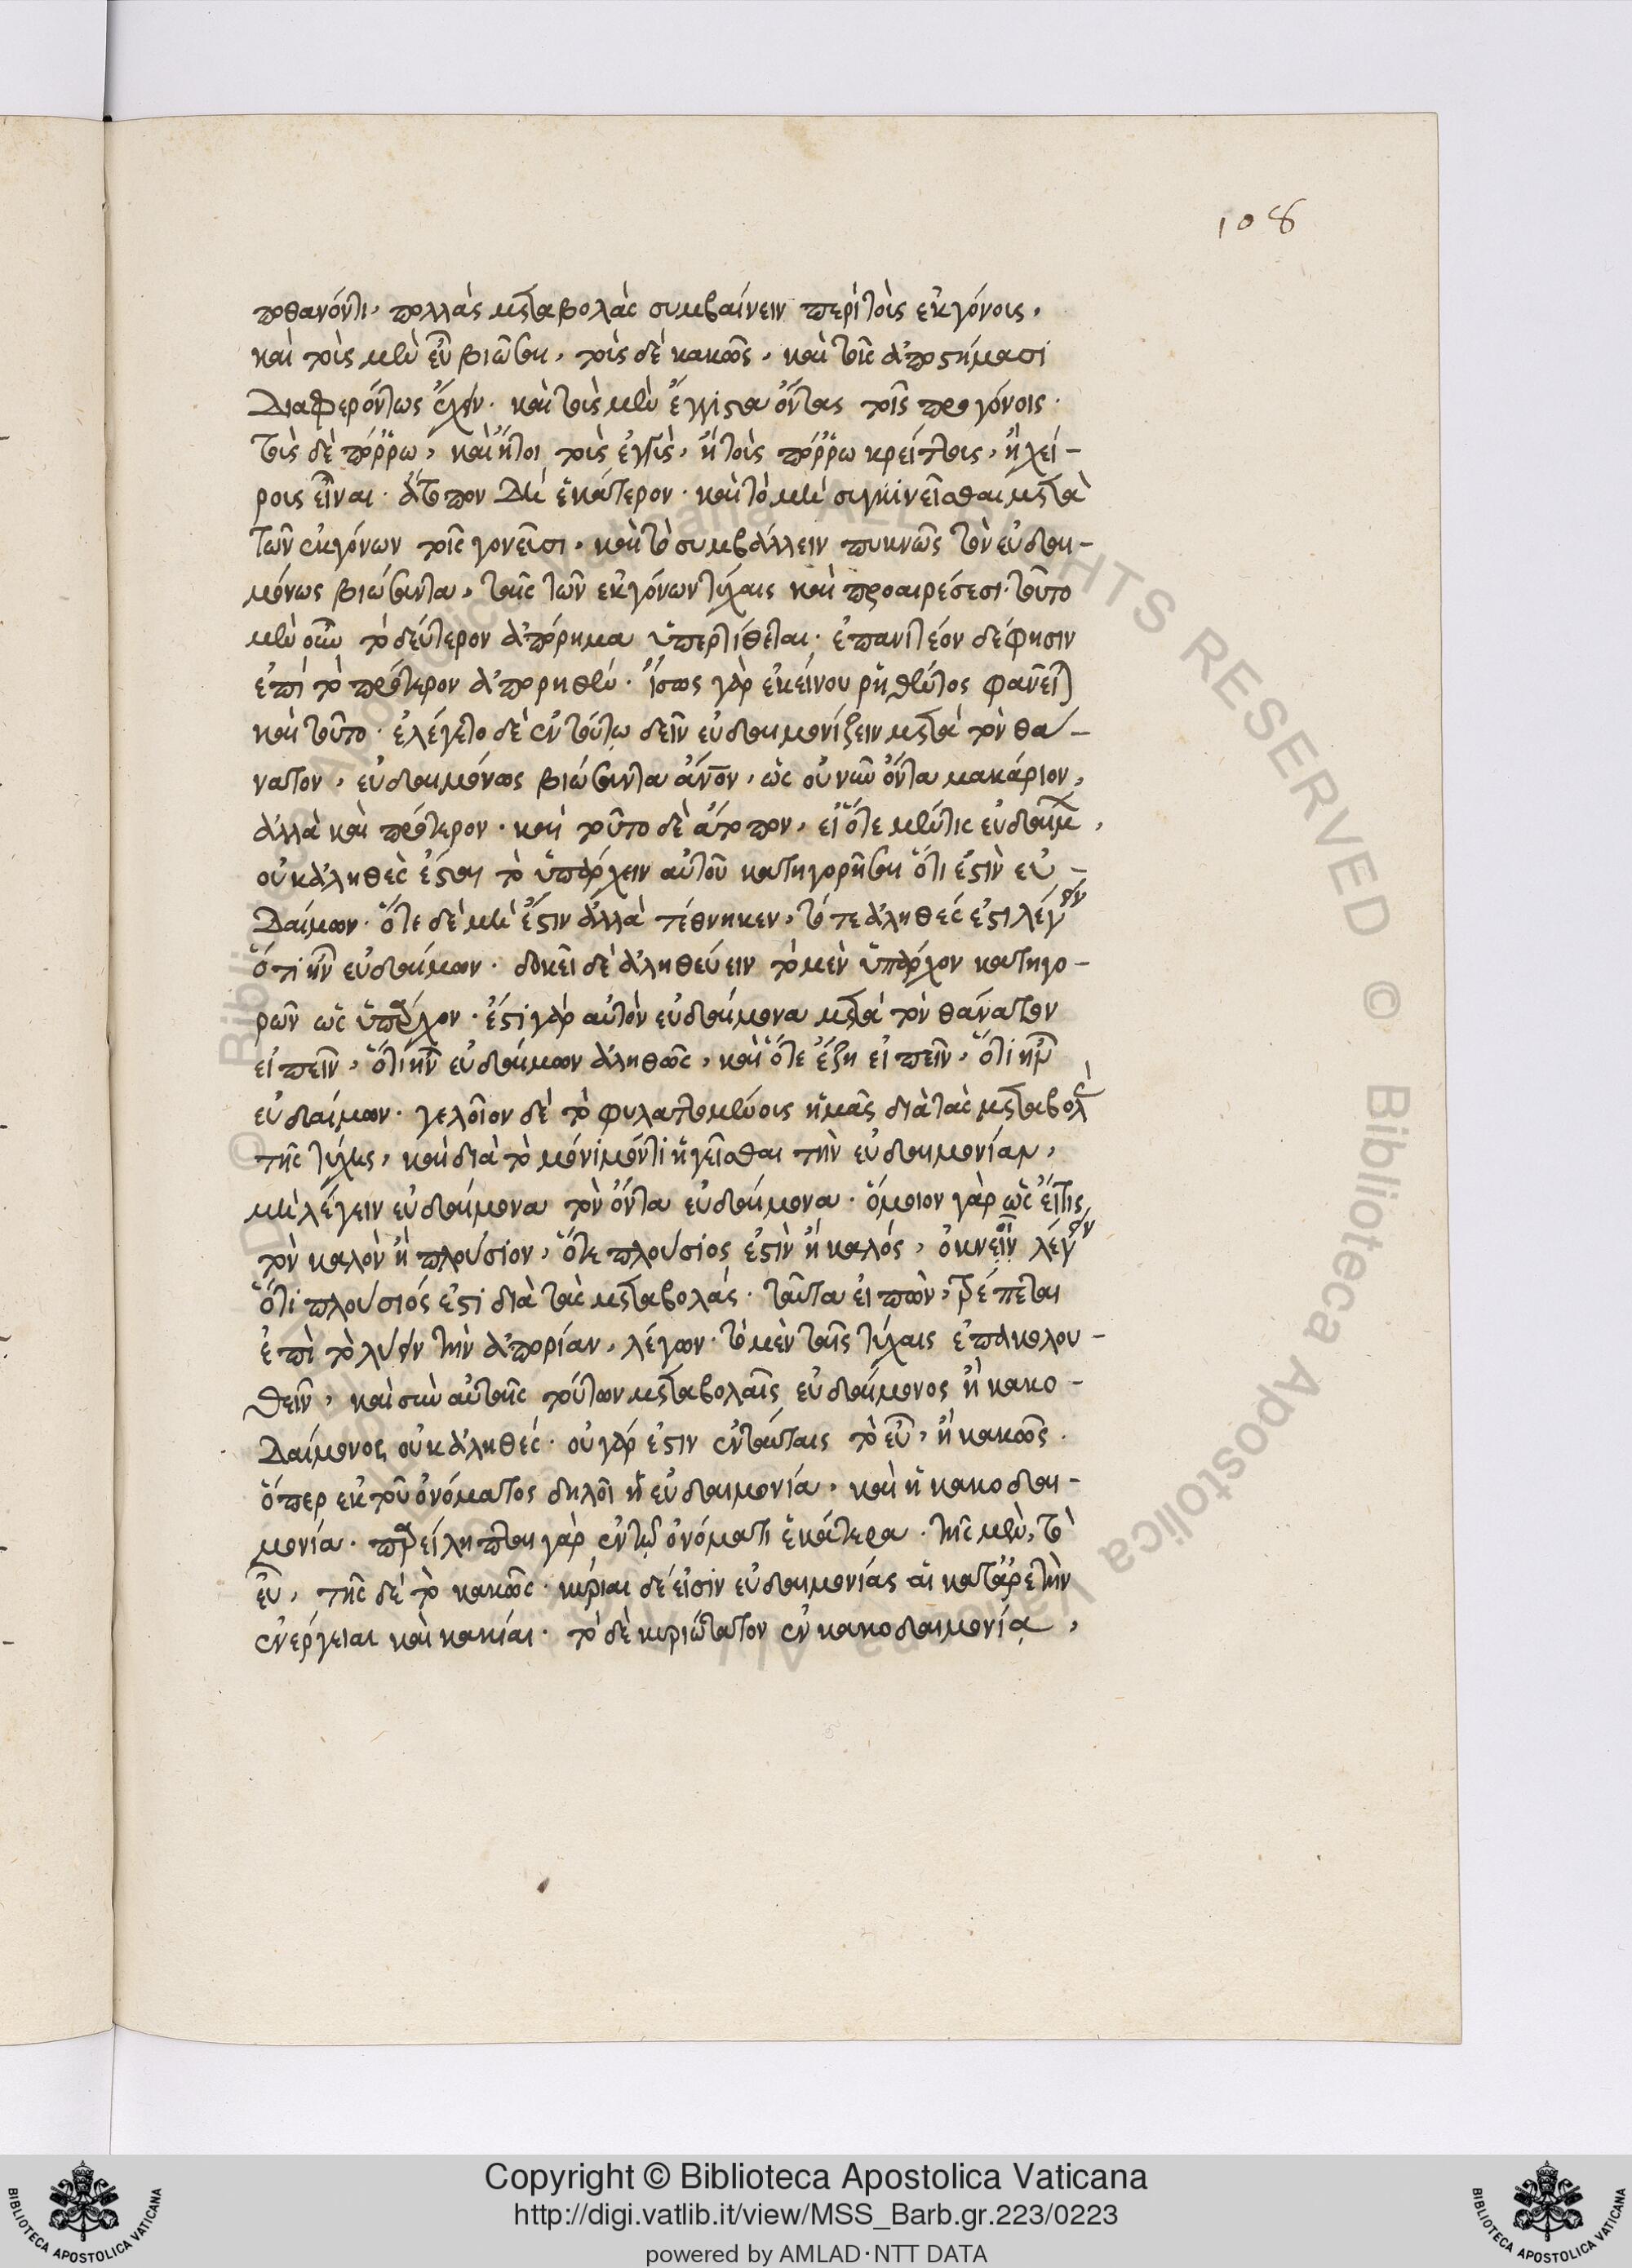 108
ποθανόντι· πολλὰς μεταβολὰς συμβαίνειν περὶ τοὺς ἐκγόνους,
καὶ τοὺς μὲν εὖ βιῶσαι, τοὺς δὲ κακῶς, καὶ τοῖς ἀποστήμασι
διαφερόντως ἔχειν· καὶ τοὺς μὲν ἔγγιστα ὄντας τοῖς προγόνοις·
τοὺς δὲ πόρρω, καὶ ἤτοι τοὺς ἐγγὺς, ἢ τοὺς πόρρω κρείττους, ἢ χεί-
ρους εἶναι· ἄτοπον δὴ ἑκάτερον· καὶ τὸ μὴ συγκινεῖσθαι μετὰ
τῶν ἐκγόνων τοῖς γονεῦσι, καὶ τὸ συμβάλλειν πυκνῶς τὸν εὐδαι-
μόνως βιώσαντα, ταῖς τῶν ἐκγόνων τύχαις καὶ προαιρέσεσι· τοῦτο
μὲν οὖν τὸ δεύτερον ἀπόρημα ὑπερτίθεται· ἐπανιτέον δέ φησιν
ἐπὶ τὸ πρότερον ἀπορηθέν· ἴσως γὰρ ἐκείνου ῥηθέντος φανεῖται
καὶ τοῦτο· ἐλέγετο δὲ ἐν τούτῳ δεῖν εὐδαιμονίζειν μετὰ τὸν θά-
νατον, εὐδαιμόνως βιώσαντα ἄνον, ὡς οὐ νῦν ὄντα μακάριον,
ἀλλὰ καὶ πρότερον· καὶ τοῦτο δὲ ἄτοπον, εἰ ὅτε μέν τις εὐδαίμων,
οὐκ ἀληθὲς ἔσται τὸ ὑπάρχειν αὐτοῦ κατηγορῆσαι ὅτι ἐστὶν εὐ-
δαίμων· ὅτε δὲ μὴ ἔστιν ἀλλὰ τέθνηκεν, τότε ἀληθές ἐστι λέγειν
ὅτι ἦν εὐδαίμων· δοκεῖ δὲ ἀληθεύειν τὸ μὲν ὑπάρχον κατηγο-
ρῶν ὡς ὑπάρχον· ἔστι γὰρ αὐτὸν εὐδαίμονα μετὰ τὸν θάνατον
εἰπεῖν, ὅτι ἦν εὐδαίμων ἀληθῶς, καὶ ὅτε ἔζη εἰπεῖν, ὅτι ἦν
εὐδαίμων· γελοῖον δὲ τὸ φυλαττομένους ἡμᾶς διὰ τὰς μεταβολὰς
τῆς τύχης, καὶ διὰ τὸ μόνιμόν τι ἡγεῖσθαι τὴν εὐδαιμονίαν,
μὴ λέγειν εὐδαίμονα τὸν ὄντα εὐδαίμονα· ὅμοιον γὰρ ὡς εἴ τις
τὸν καλὸν ἢ πλούσιον, ὅτε πλούσιος ἐστὶν ἢ καλός, ὀκνοῖ λέγειν
ὅτι πλούσιός ἐστι διὰ τὰς μεταβολάς· ταῦτα εἰπὼν, τρέπεται
ἐπὶ τὸ λύειν τὴν ἀπορίαν, λέγων· τὸ μὲν ταῖς τύχαις ἐπακολου-
θεῖν, καὶ σὺν αὐταῖς τούτων μεταβολαῖς εὐδαίμονος ἢ κακο-
δαίμονος οὐκ ἀληθές· οὐ γάρ ἐστιν ἐν ταύταις τὸ εὖ, ἢ κακῶς·
ὅπερ ἐκ τοῦ ὀνόματος δηλοῖ ἡ εὐδαιμονία, καὶ ἡ κακοδαι-
μονία· παρείληπται γὰρ ἐν τῷ ὀνόματι ἑκάτερα· τῆς μὲν, τὸ
εὖ, τῆς δὲ τὸ κακῶς· κύριαι δέ εἰσιν εὐδαιμονίας αἱ κατ' ἀρετὴν
ἐνέργειαι καὶ κακίαι· τὸ δὲ κυριώτατον ἐν κακοδαιμονίᾳ,
Copyright © Biblioteca Apostolica Vaticana
http://digi.vatlib.it/view/MSS_Barb.gr.223/0223
powered by AMLAD·NTT DATA